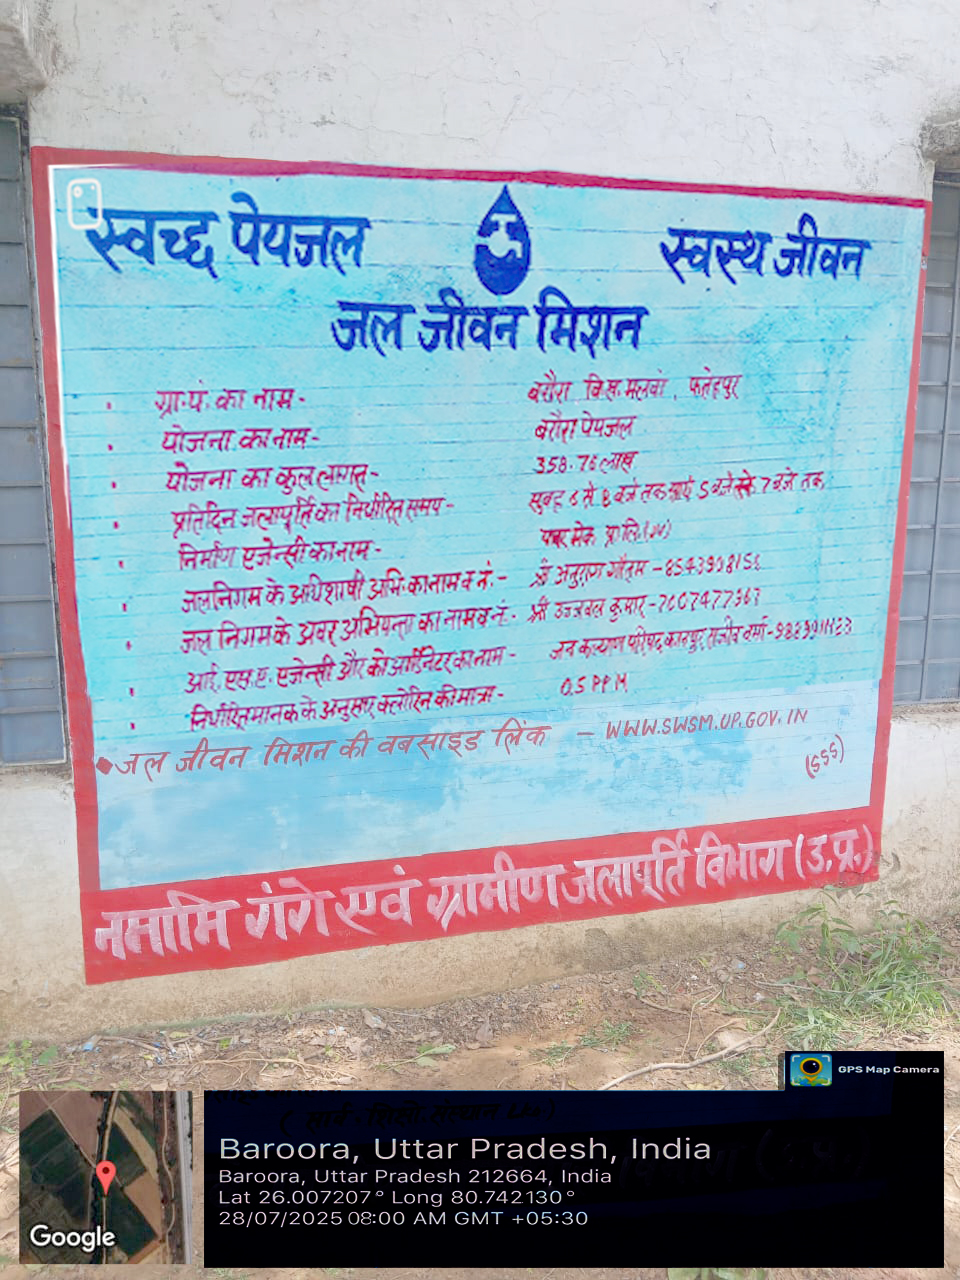 स्वच्छ पेयजल स्वस्थ जीवन
जल जीवन मिशन
ग्रा.पं. का नाम - बरौरा वि.ख. मलवां, फतेहपुर
योजना का नाम - बरौरा पेयजल
योजना का कुल लागत - 358.76 लाख
प्रतिदिन जलापूर्ति का निर्धारित समय - सुबह 6 से 8 बजे तक सायं 5 बजे से 7 बजे तक
निर्माण एजेन्सी का नाम - पावर मेक प्रा.लि.
जलनिगम के अधिशाषी अभि. का नाम व नं. - श्री अनुराग गौतम -
जल निगम के अवर अभियन्ता का नाम व नं. - श्री उज्जवल कुमार -
आई.एस.ए. एजेन्सी और को आर्डिनेटर का नाम - जन कल्याण परिषद, कानपुर,
निर्धारित मानक के अनुसार क्लोरिन की मात्रा - 0.5 PPM
जल जीवन मिशन की वबसाइड लिंक - WWW.SWSM.UP.GOV.IN
(SSS)
नमामि गंगे एवं ग्रामीण जलापूर्ति विभाग (उ.प्र.)
GPS Map Camera
Baroora, Uttar Pradesh, India
Baroora, Uttar Pradesh 212664, India
Lat 26.007207° Long 80.742130°
28/07/2025 08:00 AM GMT +05:30
Google